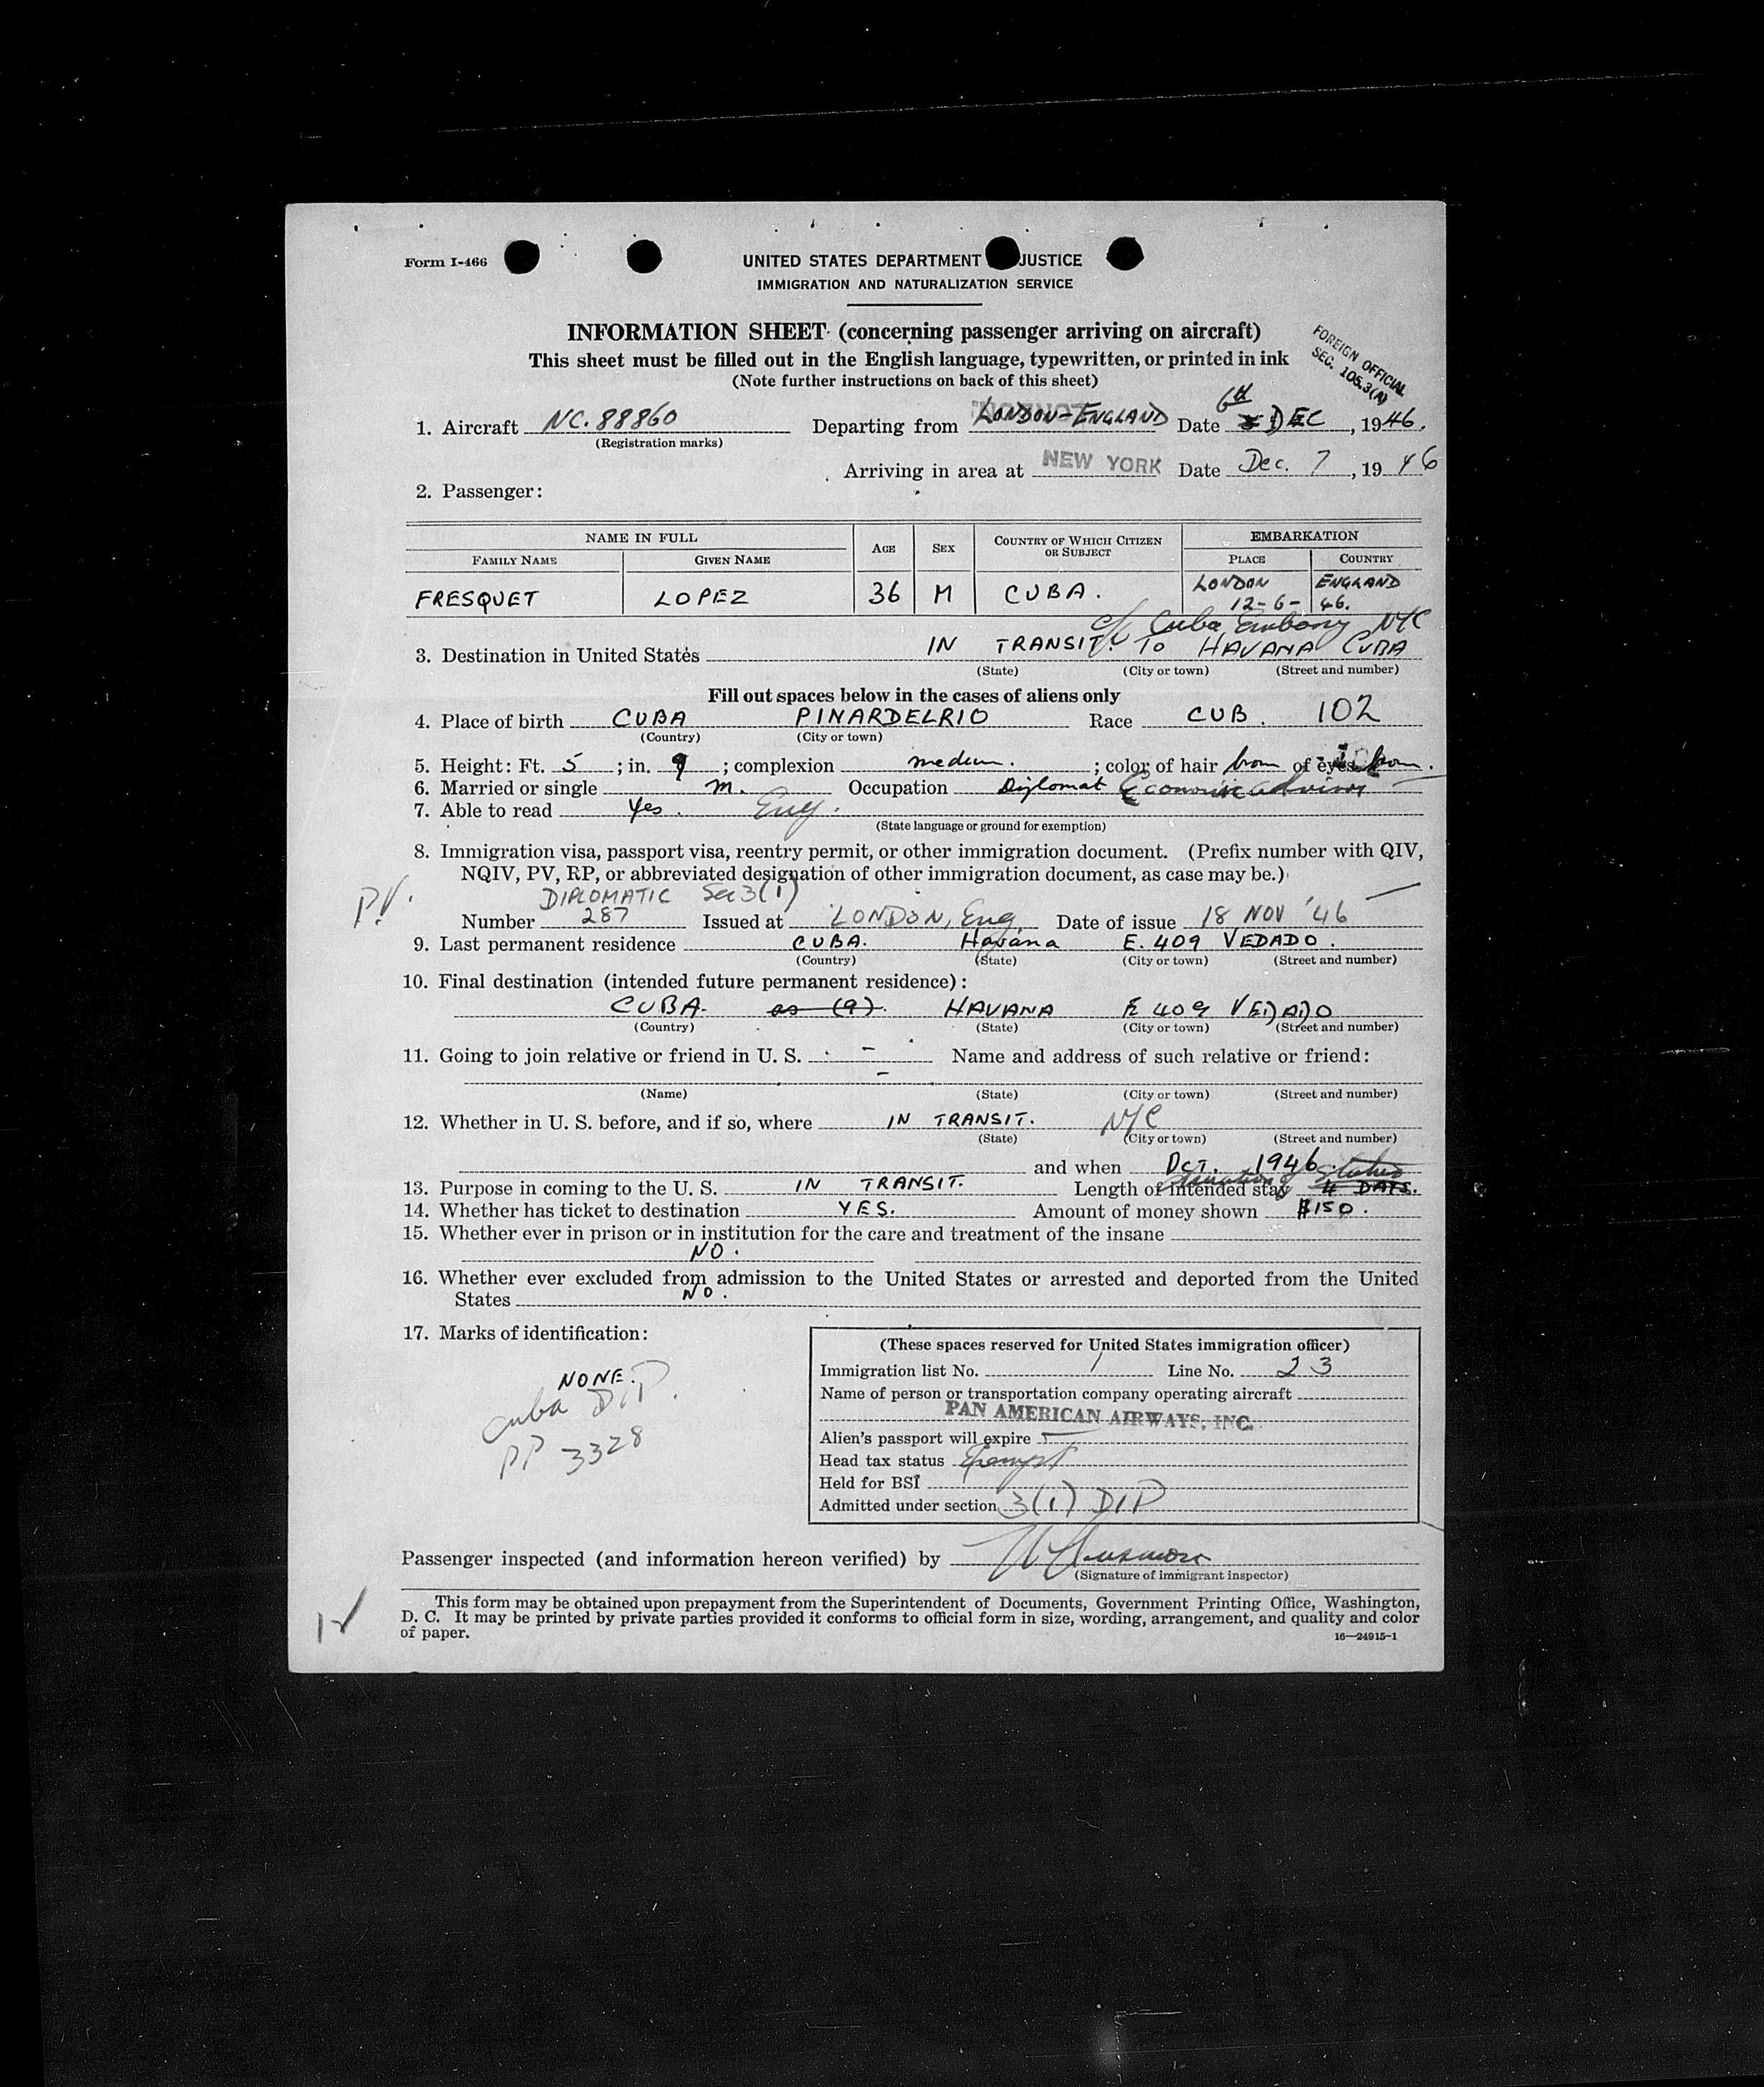 Form I-466
UNITED STATES DEPARTMENT JUSTICE
IMMIGRATION AND NATURALIZATION SERVICE
INFORMATION SHEET (concerning passenger arriving on aircraft)
This sheet must be filled out in the English language, typewritten, or printed in ink
(Note further instructions on back of this sheet)
FOREIGN OFFICIAL
SEC. 105.3(A)
1. Aircraft NC. 88860 Departing from LONDON-ENGLAND Date 6th DEC, 1946.
(Registration marks)
Arriving in area at NEW YORK Date Dec. 7, 19 46
2. Passenger:
NAME IN FULL
FAMILY NAME GIVEN NAME AGE SEX COUNTRY OF WHICH CITIZEN OR SUBJECT EMBARKATION
PLACE COUNTRY
FRESQUET LOPEZ 36 M CUBA. LONDON ENGLAND
12-6-46.
c/o Cuba Embassy NYC
3. Destination in United States IN TRANSIT. TO HAVANA CUBA
(State) (City or town) (Street and number)
Fill out spaces below in the cases of aliens only
4. Place of birth CUBA PINARDELRIO Race CUB. 102
(Country) (City or town)
5. Height: Ft. 5; in. 9; complexion medium.; color of hair brown of eyes brown.
6. Married or single m. Occupation Diplomat Economic advisor
7. Able to read Yes. Eng.
(State language or ground for exemption)
8. Immigration visa, passport visa, reentry permit, or other immigration document. (Prefix number with QIV,
NQIV, PV, RP, or abbreviated designation of other immigration document, as case may be.)
P.V. DIPLOMATIC Sec 3(1)
Number 287 Issued at LONDON, Eng. Date of issue 18 NOV '46
9. Last permanent residence CUBA. Havana E. 409 VEDADO.
(Country) (State) (City or town) (Street and number)
10. Final destination (intended future permanent residence):
CUBA. as (9). HAVANA E 409 VEDADO
(Country) (State) (City or town) (Street and number)
11. Going to join relative or friend in U. S. - Name and address of such relative or friend:
-
(Name) (State) (City or town) (Street and number)
12. Whether in U. S. before, and if so, where IN TRANSIT. NYC
(State) (City or town) (Street and number)
and when OCT. 1946.
duration of status
13. Purpose in coming to the U. S. IN TRANSIT. Length of intended stay 4 DAYS.
14. Whether has ticket to destination YES. Amount of money shown $150.
15. Whether ever in prison or in institution for the care and treatment of the insane
NO.
16. Whether ever excluded from admission to the United States or arrested and deported from the United
States NO.
17. Marks of identification:
NONE.
Cuba DIP.
PP 3328
(These spaces reserved for United States immigration officer)
Immigration list No. 1 Line No. 23
Name of person or transportation company operating aircraft
PAN AMERICAN AIRWAYS, INC.
Alien's passport will expire -
Head tax status Exempt
Held for BSI
Admitted under section 3(1) DIP
Passenger inspected (and information hereon verified) by
(Signature of immigrant inspector)
This form may be obtained upon prepayment from the Superintendent of Documents, Government Printing Office, Washington,
D. C. It may be printed by private parties provided it conforms to official form in size, wording, arrangement, and quality and color
of paper.
16—24915-1